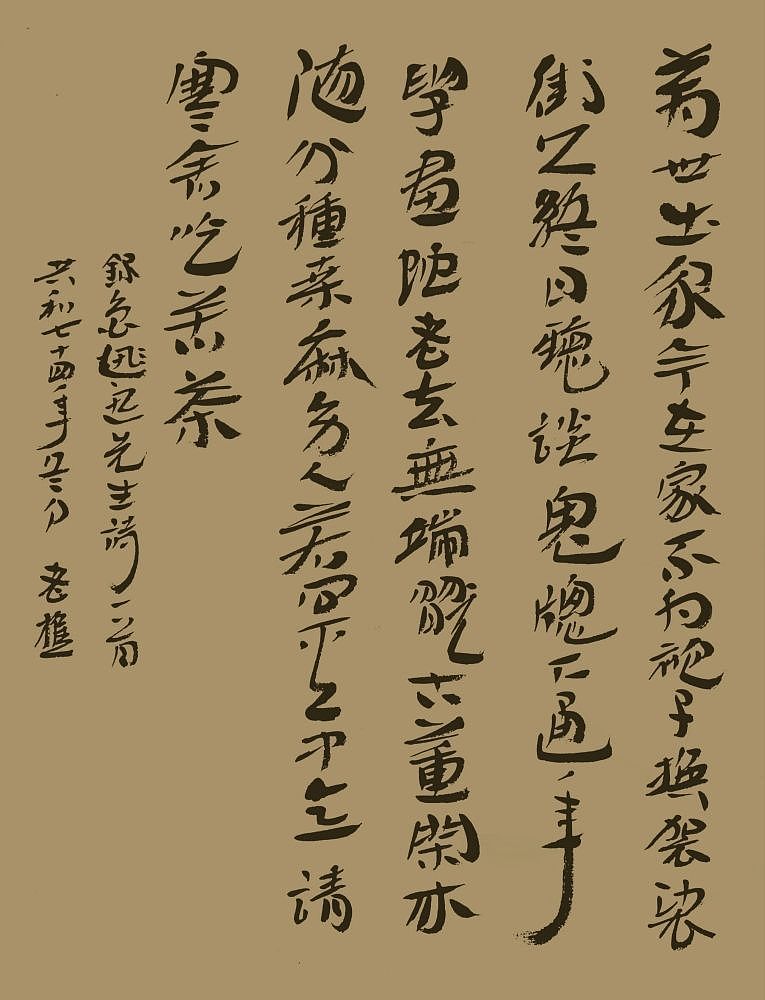 前世出家今在家不為袍子換袈裟
街終日聽談鬼牕下通年
學畫蛇老去無端翫古董閑
随分種桑麻旁人若問中意請
寒舍吃苦茶
錄先生詩一首
共和七十四年 老樵